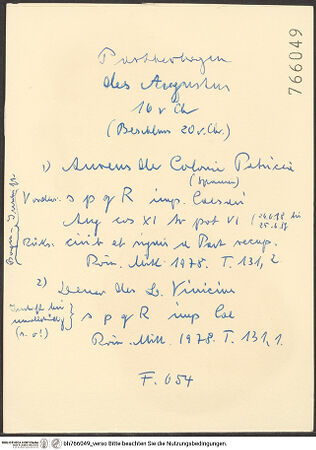 766049
Partherbogen
des Augustus
16 v Chr
(Beschluss 20 v. Chr.)
1) Aureus der Colonia Patricia
(Spanien)
Vorders: s p q R imp. Caesari
Aug cos XI tr pot VI (26.6.18 bis
25.6.17
Rücks: civib et signis a Part recup.
Röm. Mitt. 1978. T. 131, 2.
2) Denar des L. Vinicius
s p q R imp Cae
(s. o!)
Röm. Mitt. 1978. T. 131, 1.
F. 654
bh766049_verso Bitte beachten Sie die Nutzungsbedingungen.